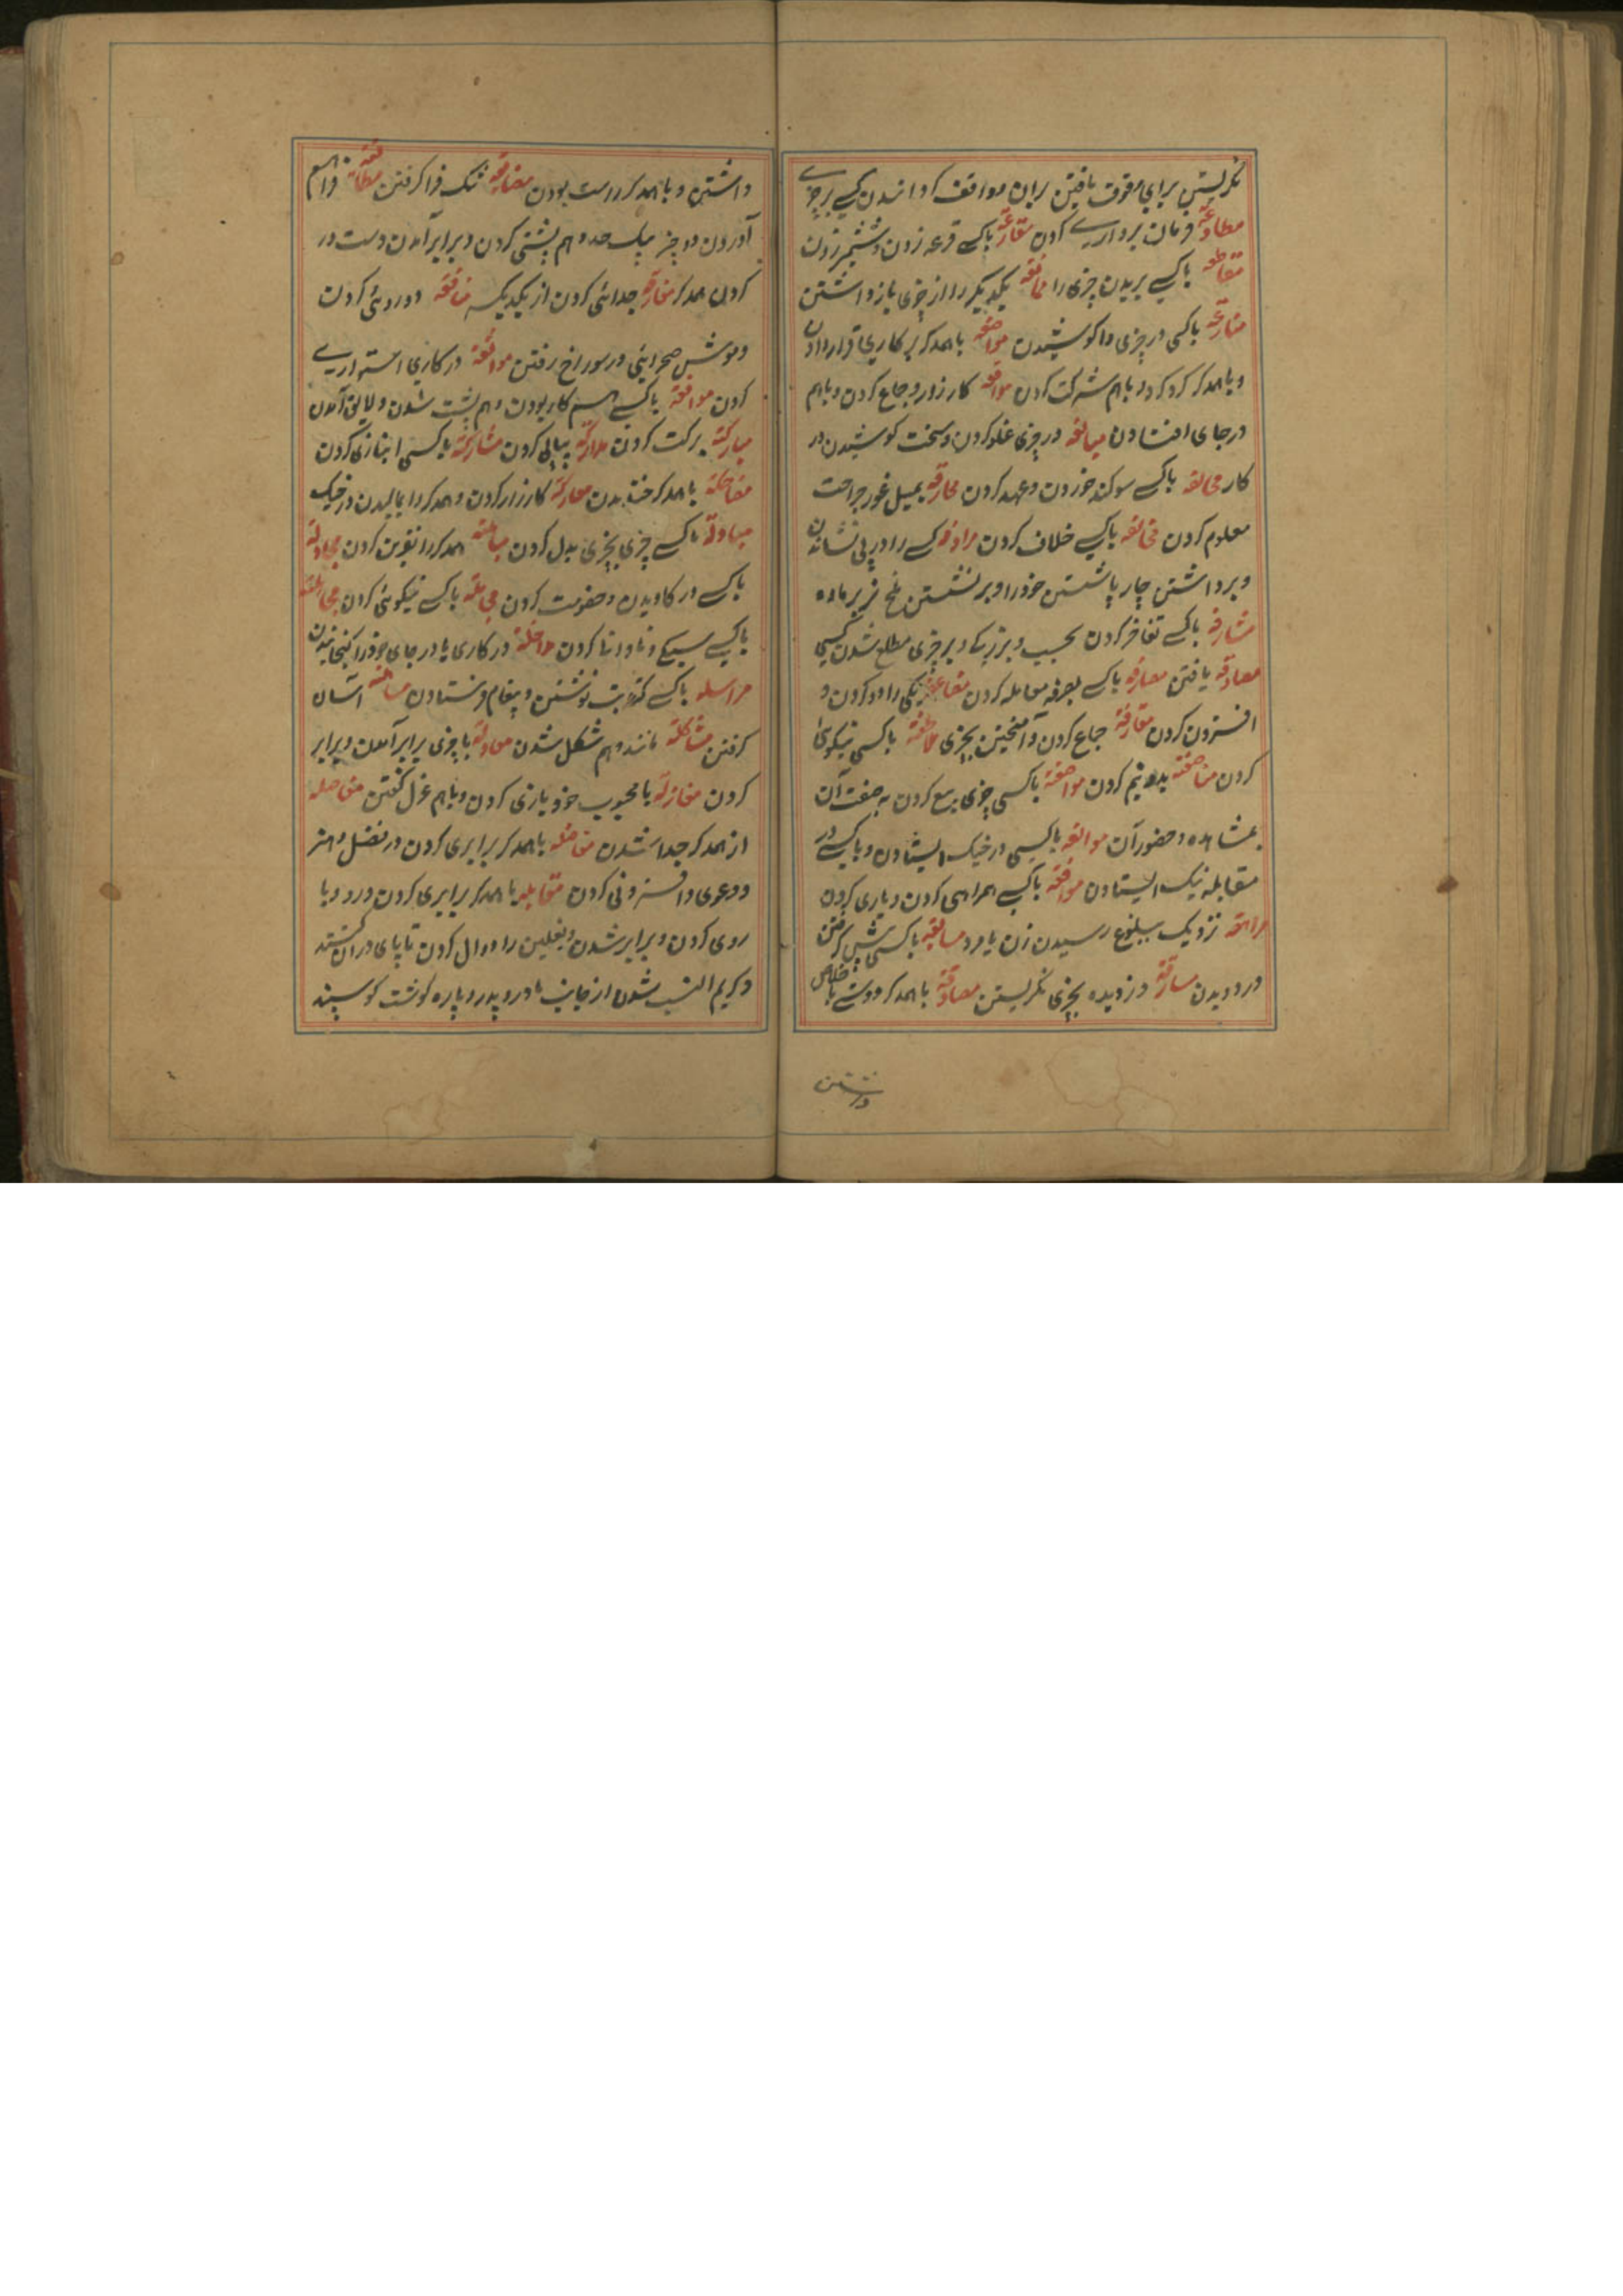 نکریستن برای وقوف یافتن بران مواقف کردانیدن کسے بر چیزے
مطاوعة فرمان برداریے کردن مقارعة باکسے قرعه زدن و شمشیر زدن
مقاطعه باکسے بریدن چیزی را ممانعه یکدیکر را از چیزی باز داشتن
منازعة باکسی در چیزی واکوشیدن مواضعه باهمدکر بر کاری قرار دادن
و باهمدکر کرو کردن و باهم شرکت کردن مواقعه کارزار و جماع کردن و باهم
در جای افتادن مبالغه در چیزی غلو کردن و سخت کوشیدن در
کار محالفه باکسے سوکند خوردن و عهد کردن محارفه بمیل غور جراحت
معلوم کردن مخالفه باکسے خلاف کردن مرادفه کسے را در پی نشاندن
و برداشتن چارپا پشتن خود را و برنشستن ملخ نر بر ماده
مشارفه باکسے تفاخر کردن بحسب و بزرگے و بر چیزی مطلع شدن کسی
مصادفه یافتن معارفه باکسے بعرفه معامله کردن مضاعفة یکی را دو کردن و
افزون کردن مقارفة جماع کردن و آمیختن بچیزی ملاطفة باکسی نیکوئی
کردن مناصفة بدو نیم کردن مواصفة باکسی چیزی بیع کردن به صفت آن
بمشاهده و حضور آن مواقفه باکسی در جنک ایستادن و باکسے در
مقابله نیک ایستادن مرافقة باکسے همراهی کردن و یاری کردن
مراهقه نزدیک ببلوغ رسیدن زن یا مرد مسابقه باکسی پیش کرفتن
در دویدن مسارقة دزدیده بچیزی نکریستن مصادقة باهمدکر دوستے باخلاص
داشتن
داشتن و باهمدکر راست بودن مضایقة تنک فرا کرفتن مطابقة فراهم
آوردن دو چیز بیک حد و هم پشتی کردن و برابر آمدن دست در
کردن همدکر مفارقه جدائی کردن از یکدیکر منافقه دوروئی کردن
و موش صحرایئ در سوراخ رفتن مواثقة در کاری استواریے
کردن موافقة باکسے همکار بودن و هم پشت شدن و لایق آمدن
مبارکة برکت کردن مدارکة پیاپی کردن مشارکة باکسی انبازی کردن
مضاحکة باهمدکر خندیدن معارکة کارزار کردن و همدکر را مالیدن در جنک
مبادلة باکسے چیزی بچیزی بدل کردن مباهلة همدکر را نفرین کردن مجادلة
باکسے در کاویدن و خصومت کردن مجاملة باکسے نیکوئی کردن
باکسے سبکے و نادانی کردن مداخلة در کاری یا در جای خود را کنجانیدن
مراسله باکسے کتابت نوشتن و پیغام فرستادن مساهلة آسان
کرفتن مشاکلة مانند و هم شکل شدن معادلة باچیزی برابر آمدن و برابر
کردن مغازلة بامحبوب خود بازی کردن و باهم غزل کفتن مفاصله
از همدکر جدا شدن مفاضله باهمدکر برابری کردن در فضل و هنر
و دعوی و افزونی کردن مقابله باهمدکر برابری کردن و رو وبا
روی کردن و برابر شدن و نعلین را دوال کردن تا پای در آن
و کریم النسب شدن از جانب مادر و پدر و پاره کوشت کوسپند